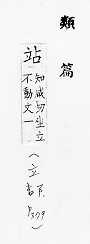 類篇
站
知咸切坐立
不動文一
(立
P379)